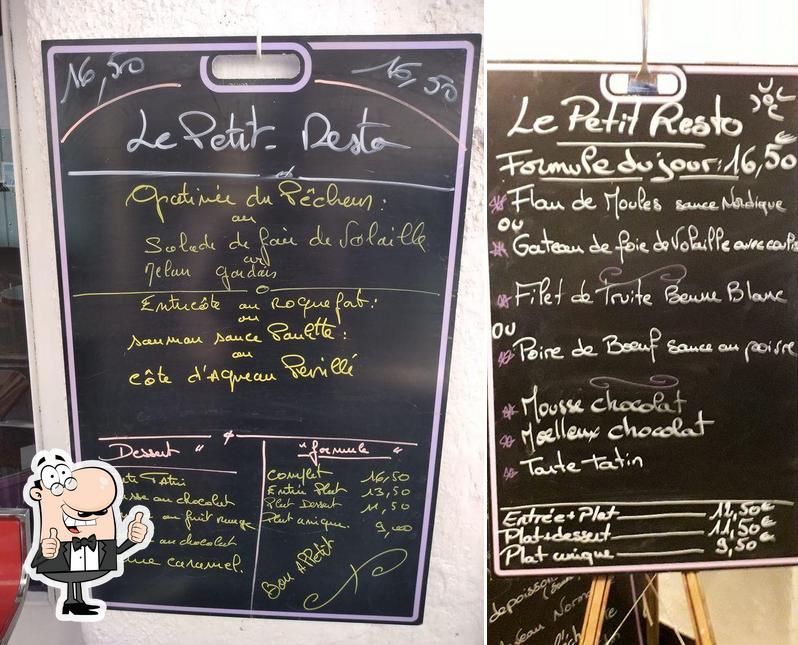 16,50
16,50
Le Petit Resto
Gratinée du Pêcheur :
ou
Salade de foie de Volaille
ou
Melon
Entrecôte au Roquefort :
ou
saumon sauce Paulette :
ou
côte d'Agneau Persillé
Dessert
"formule"
Tatin
au chocolat
au fruit rouge
au chocolat
caramel.
Complet 16,50
Entrée Plat 13,50
Plat Dessert 11,50
Plat unique 9,00
Bon Appetit
Le Petit Resto
Formule du jour : 16,50€
Flan de Moules sauce Nordique
ou
Gateau de foie de Volaille avec
Filet de Truite Beurre Blanc
ou
Poire de Bœuf sauce au poivre
Mousse chocolat
Moelleux chocolat
Tarte tatin
Entrée + Plat 12,50€
Plat + dessert 11,50€
Plat unique 9,50€